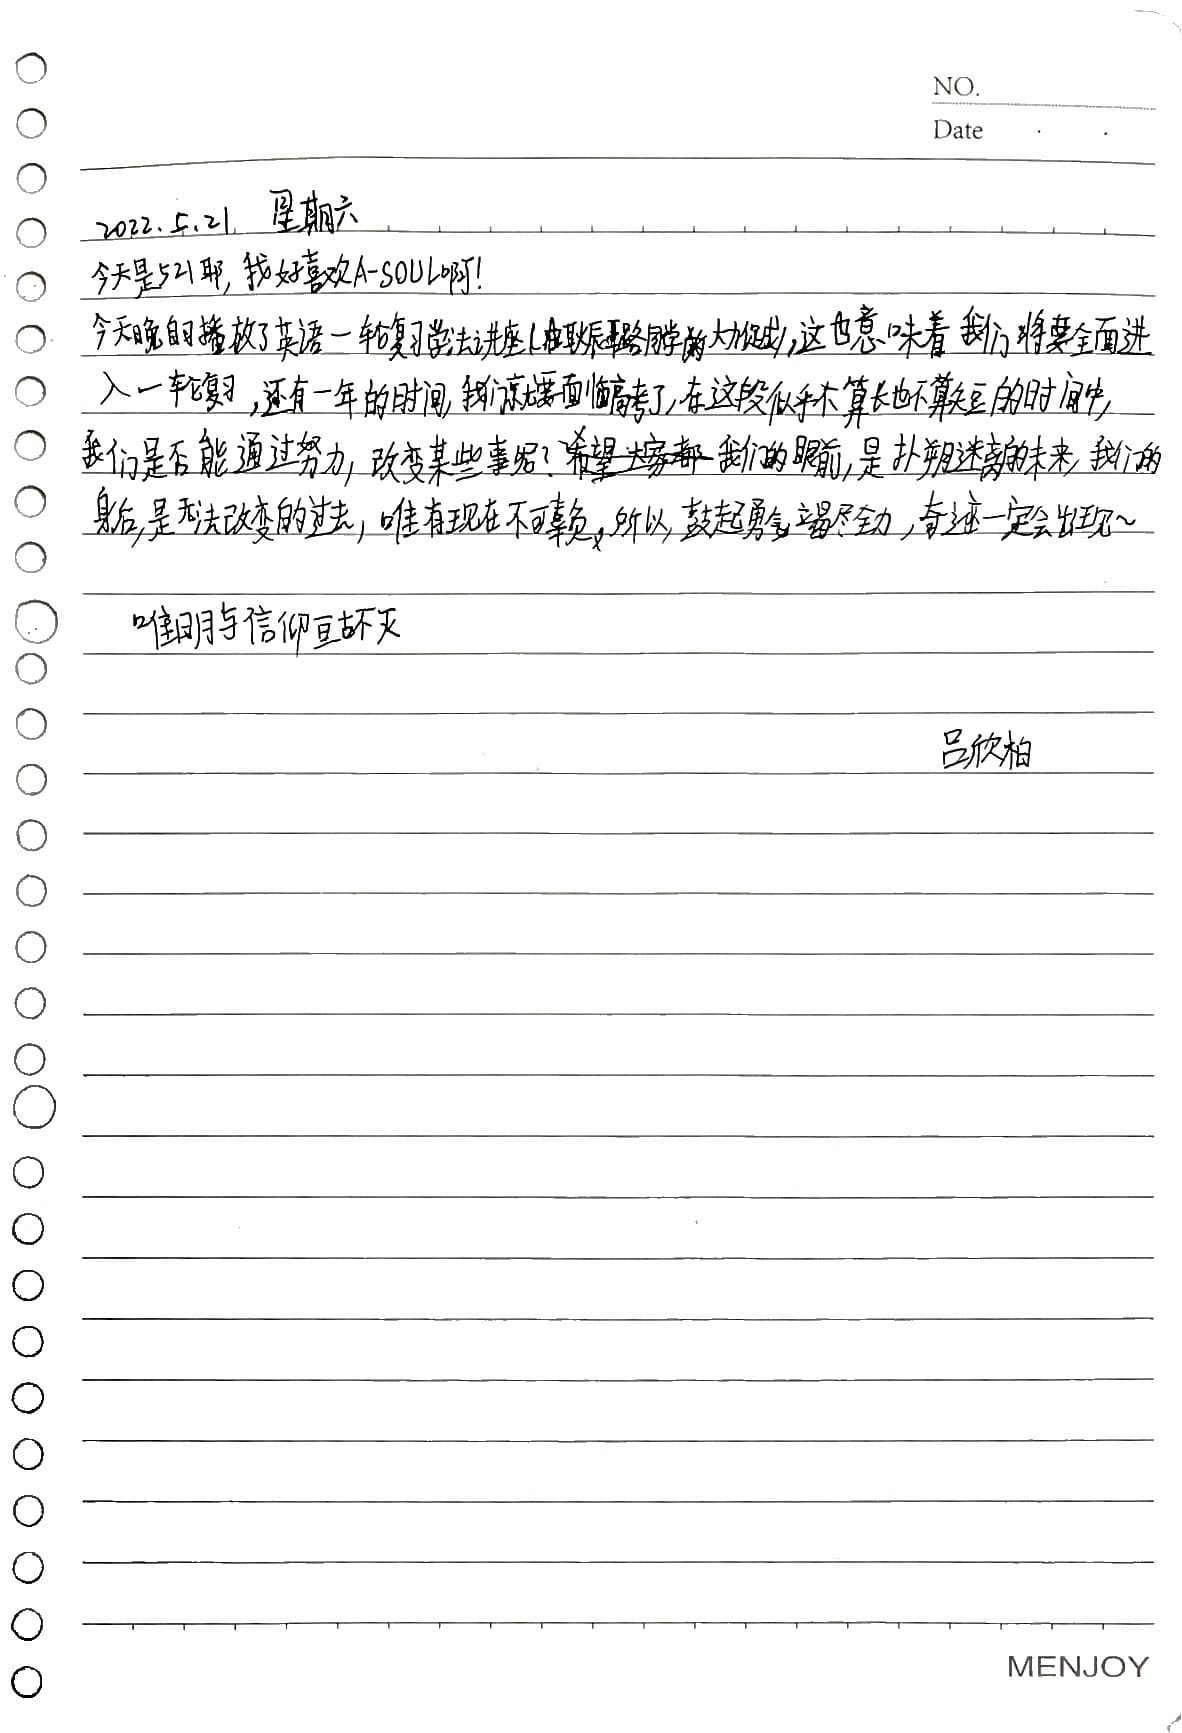 NO.
Date
2022.5.21. 星期六
今天是521耶,我好喜欢A-SOUL啊!
今天晚自习播放了英语一轮复习学法讲座(由耿辰路同学的大力促成),这也意味着我们将要全面进
入一轮复习,还有一年的时间,我们就要面临高考了,在这段似乎不算长也不算短的时间中,
我们是否能通过努力,改变某些事呢?希望大家都我们的眼前,是扑朔迷离的未来,我们的
身后,是无法改变的过去,唯有现在不可辜负,所以,鼓起勇气竭尽全力,奇迹一定会出现~
唯明与信仰亘古不灭
吕欣柏
MENJOY